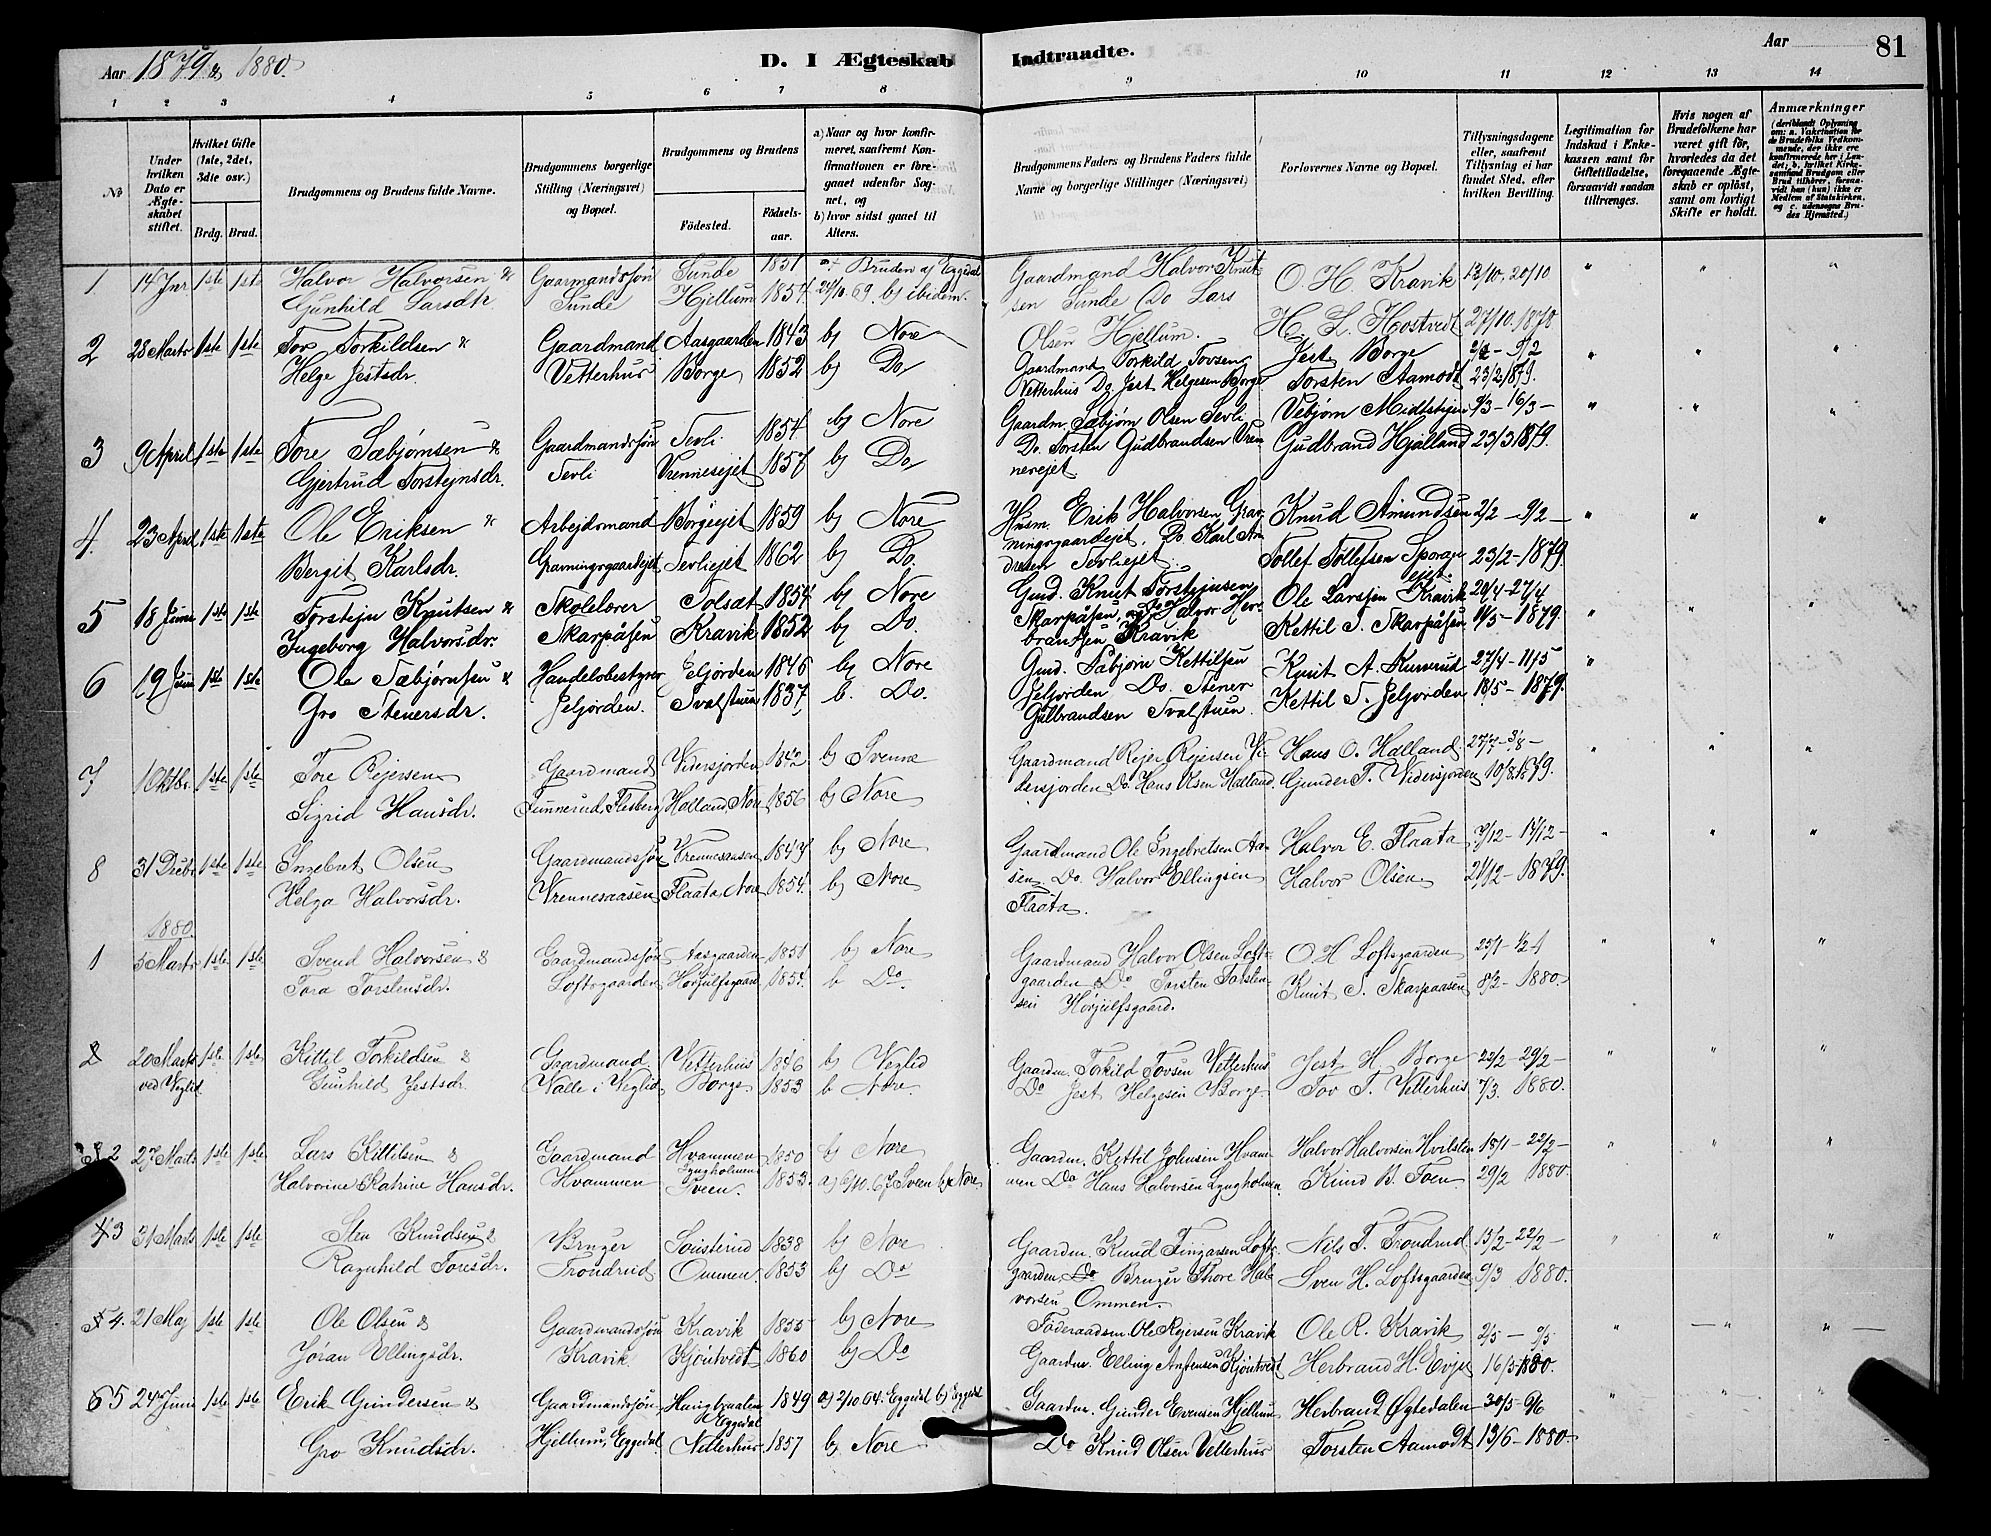 Aar 1879 & 1880. D. I Ægteskab Indtraadte. Aar 81
1 2 3 4 5 6 7 8 9 10 11 12 13 14
No
Under hvilken Dato er Ægteskabet stiftet.
Hvilket Gifte (1ste, 2det, 3die osv.)
Brdg. Brud.
Brudgommens og Brudens fulde Navne.
Brudgommens borgerlige Stilling (Næringsvei) og Bopæl.
Brudgommens og Brudens
Fødested. Fødsels-aar.
a) Naar og hvor konfirmeret, saafremt Konfirmationen er foregaaet udenfor Sognet, og
b) hvor sidst gaaet til Alters.
Brudgommens Faders og Brudens Faders fulde Navne og borgerlige Stillinger (Næringsvei)
Forlovernes Navne og Bopæl.
Tillysningsdagene eller, saafremt Tillysning ei har fundet Sted, efter hvilken Bevilling.
Legitimation for Indskud i Enkekassen samt for Giftetilladelse, forsaavidt saadan tiltrænges.
Hvis nogen af Brudefolkene har været gift, hvorledes da det foregaaende Ægteskab er opløst, samt om lovligt Skifte er holdt.
Anmærkninger
1 14 Jnr 1ste 1ste Halvor Halvorsen & Gaarmandssøn Sunde 1851 a+ Bruden af Eggedal Gaardmand Halvor Knut- O. H. Kravik 13/10, 20/10 " " "
Gunhild Larsdtr. Sunde Hjellum 1854 24/10 69. b) ibidem. sen Sunde Do Lars
Olsen Hjellum. H. L. Hostvedt 27/10 1878
2 28 Marts 1ste 1ste Tov Torkildsen & Gaardmand Aasgaarden 1843 b) Nore Gaardmand Torkild Tovsen Jest Borge 2/2 - 9/2 " " "
Helge Jestsdr. Vetterhus Borge 1852 b) Do Vetterhus Do. Jest Helgesen Borge Torsten Aamodt 23/2 1879.
3 9 April 1ste 1ste Tore Sæbjørnsen & Gaardmandssøn Tevli 1854 b) Nore Gaardm. Sæbjørn Olsen Tevli Vebjørn Midtstigen 9/3 - 16/3 - " " "
Gjertrud Torstejnsdr. Tevli Vrennesejet 1857 b) Do Do. Torsten Gudbrandsen Vren- Gudbrand Hjalland 23/3 1879.
nesejet
4. 23 April 1ste 1ste Ole Eriksen & Arbejdsmand Borgeejet 1859 b) Nore Husm. Erik Halvorsen Grav- Knud Amundsen 2/2 - 9/2 - " " "
Bergit Karlsdr. Gravningsgaardejet Tevliejet 1862 b) Do. ningsgaardejet. Do Karl An- Tollef Tollefsen Sporan- 23/2 - 1879.
dresen Tevliejet. ejet
5 18 Juni 1ste 1ste Torstejn Knutsen & Skolelærer Tolsæt 1854 b) Nore Gmd. Knut Torstejnsen Ole Larssen Kravik 20/4 - 27/4 " " "
Ingeborg Halvorsdr. Skarpåsen Kravik 1852 b) Do. Skarpåsen, og Do Halvor Her- Kettil T. Skarpåsen 11/5 - 1879.
brandsen Kravik
6 19 Juni 1ste 1ste Ole Sæbjørnsen & Handelsbestyrer Eljorden 1846 b) Nore Gmd. Sæbjørn Kettilsen Knut A. 27/4 - 11/5 "
Gro Stenersdr. Jeljorden. Svalstuen 1837 b. Do. Jeljorden Do. Stener Kettil S. Jeljorden 18/5 - 1879.
Gulbrandsen Svalstuen.
7 1 Oktbr. 1ste 1ste Tore Rejersen Gaardmand Vidersjorden 1842 b) Svenne Gaardmand Rejer Rejersen Vi- Hans O. Halland 27/7 - 3/8 - " " "
Sigrid Hansdr. Tunnerud, Flesberg Halland, Nore 1856 b) Nore dersjorden Do. Hans Olsen Halland. Gunder T. Vidersjorden 10/8 1879.
8 31 Dcbr 1ste 1ste Ingebret Olsen Gaardmandssøn Vrennesaasen 1847 b) Nore Gaardmand Ole Ingebretsen Aa- Halvor E. Flaata 7/12 - 14/12 - " " "
Helga Halvorsdr. Vrennesaasen Flaata, Nore 1854. b) Nore sen. Do. Halvor Ellingsen Halvor Olsen 21/12 - 1879.
Flaata.
1880
1 5 Marts 1ste 1ste Svend Halvorsen & Gaardmandssøn Aasgaarden 1851 b) Nore Gaardmand Halvor Olsen Loft- O. H Loftsgaarden 25/1 - 1/2 " " "
Tora Torstensdr. Loftsgaarden Hørjulfsgaard 1854. b Do. gaarden Do Torsten Torsten- Knut T. Skarpaasen 8/2 - 1880.
sen Hørjulfsgaard.
2 20 Marts 1ste 1ste Kittil Torkildsen & Gaardmand Vetterhus 1846 b) Veglid Gaardm. Torkild Tovsen Vetterhus Jest H Borge 22/2 - 29/2 - " " "
ved Veglid Gunhild Jestsdr. Nalle i Veglid Borge 1853 b Nore. Do Jest Helgesen Borge. Tov T. Vetterhus 7/3. 1880.
3 2 27 Marts 1ste 1ste Lars Kittilsen & Gaardmand Hvammen 1850 b) Nore Gaardm. Kettil Johnsen Hvam- Halvor Halvorsen Hvilsten 15/1 - 22/2 - " " "
Halvorine Katrine Hansdr. Hvammen Lyngholmen Sveen. 1853. a) 6/10. 67 Sveen b) Nore men Do Hans Halvorsen Lyngholmen. Knud B. Toen 29/2 1880.
4 3 31 Marts 1ste 1ste Sten Knudsen & Bruger Sønsterud 1838 b) Nore Gaardm. Knud Fingarsen Lofts- Nils T. Trondrud 15/2 - 22/2 - " " "
Ragnhild Toresdr. Trondrud Ommen 1853 b) Do gaarden Do Bruger Thore Hal- Sven H. Loftsgaarden 9/3. 1880.
vorsen Ommen.
5 4. 21 Maj 1ste 1ste Ole Olsen & Gaardmandssøn Kravik 1855 b) Nore Føderaadsm. Ole Rejersen Kravik Ole R. Kravik 2/5 - 9/5 " " "
Jøran Ellingsdr. Kravik Kjøntvedt 1860 b) Do Gaardm. Elling Anfensen Kjøntvedt Herbrand H. Evje 16/5 1880.
6 5 24 Juni 1ste 1ste Erik Gundersen & Gaardmandssøn Eggedal 1849 a) 2/10 64. Eggedal b) Eggedal Gaardm. Gunder Evensen Hjellum Herbrand Øgtedalen 30/5 - 6/6 " " "
Gro Knudsdr. Hjellum, Eggedal Vetterhus 1857 b) Nore Do Knud Olsen Vetterhus Torsten Aamodt 13/6 - 1880.